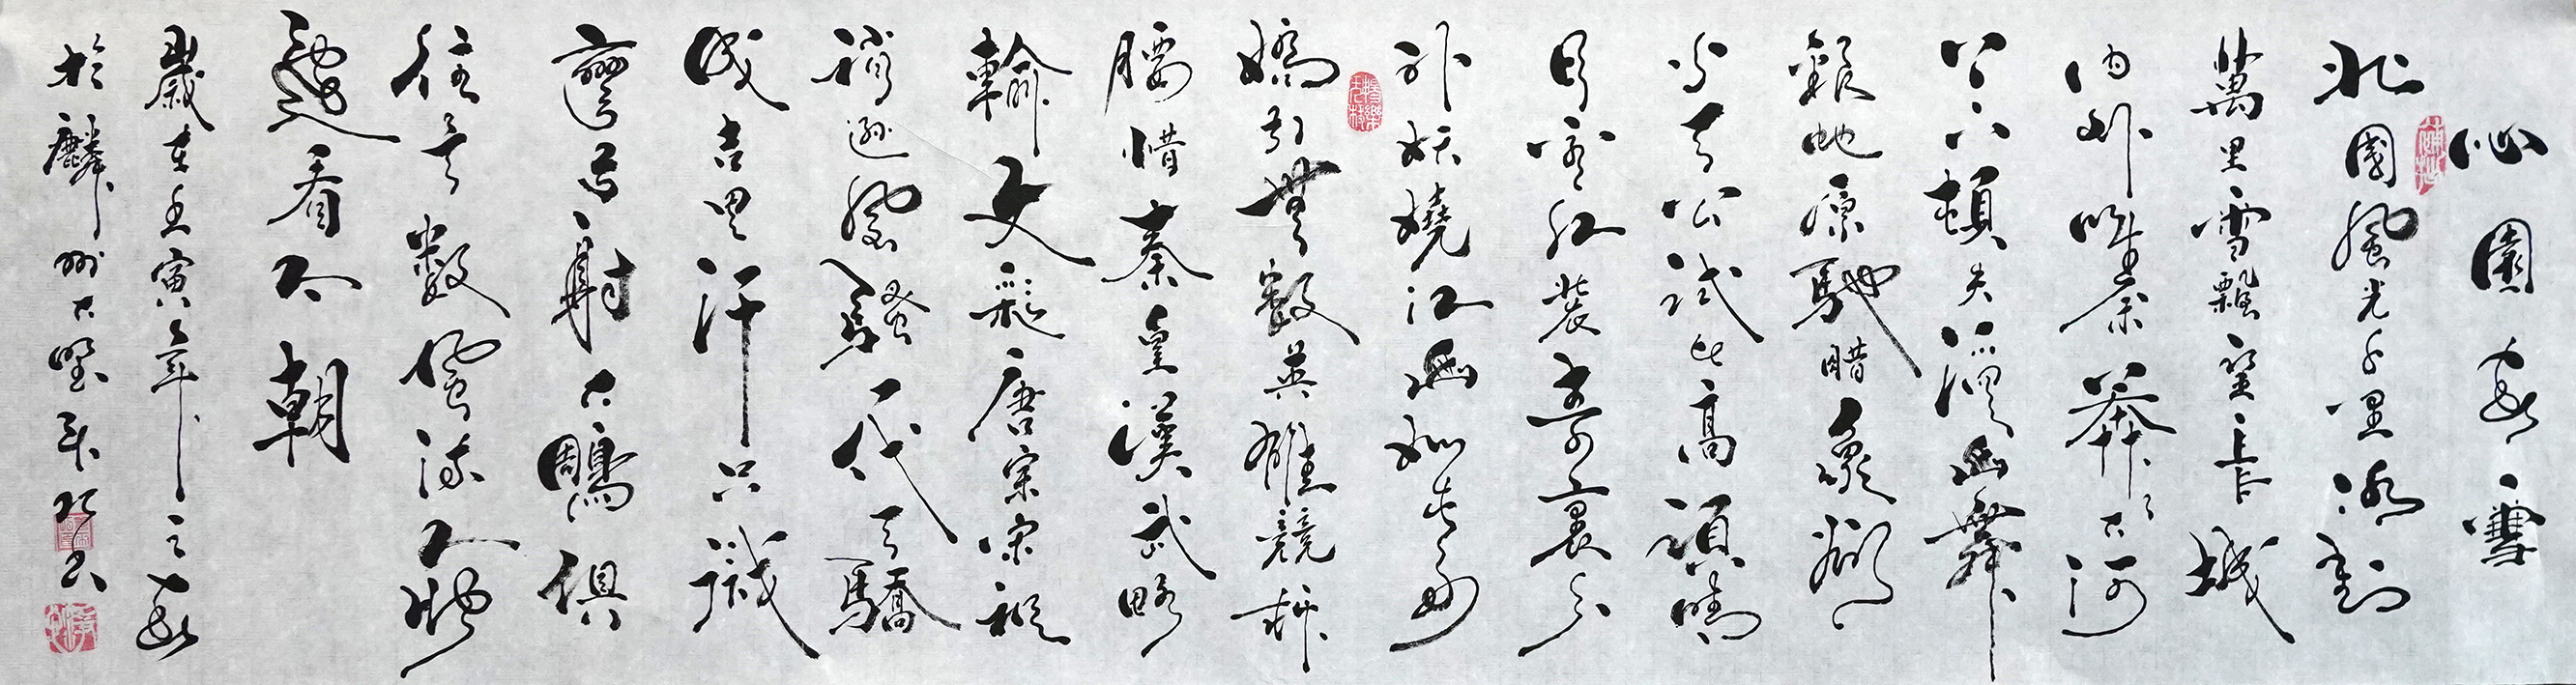 沁園春雪
北國風光千里冰封
萬里雪飄望長城
内外唯余莽莽大河
上下頓失滔滔山舞
銀蛇原馳腊象欲
与天公試比高須晴
日看紅裝素裹分
外妖嬈江山如此多
嬌引無數英雄競折
腰惜秦皇漢武略
輸文彩唐宗宋祖
稍遜風騷一代天驕
成吉思汗只識
彎弓射大鵰俱
往矣數風流人物
還看今朝
歲在壬寅年之春
於麟州大堅書